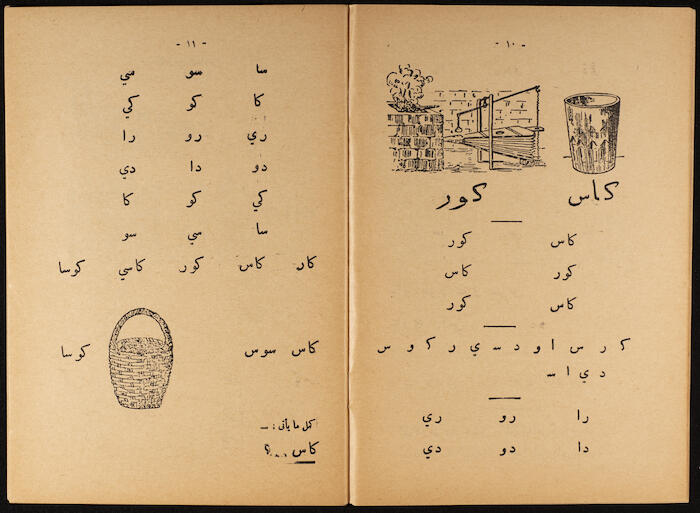 - ١٠ -
كاس كور
كاس كور
كور كاس
كاس كور
ك ر س ا و د س ي ر ك و س
د ي ا س
را رو ري
دا دو دي
- ١١ -
سا سو سي
كا كو كي
ري رو را
دو دا دي
كي كو كا
سا سي سو
كار كاس كور كاسي كوسا
كاس سوس كوسا
كمل ما يأتى : —
كاس ... ؟